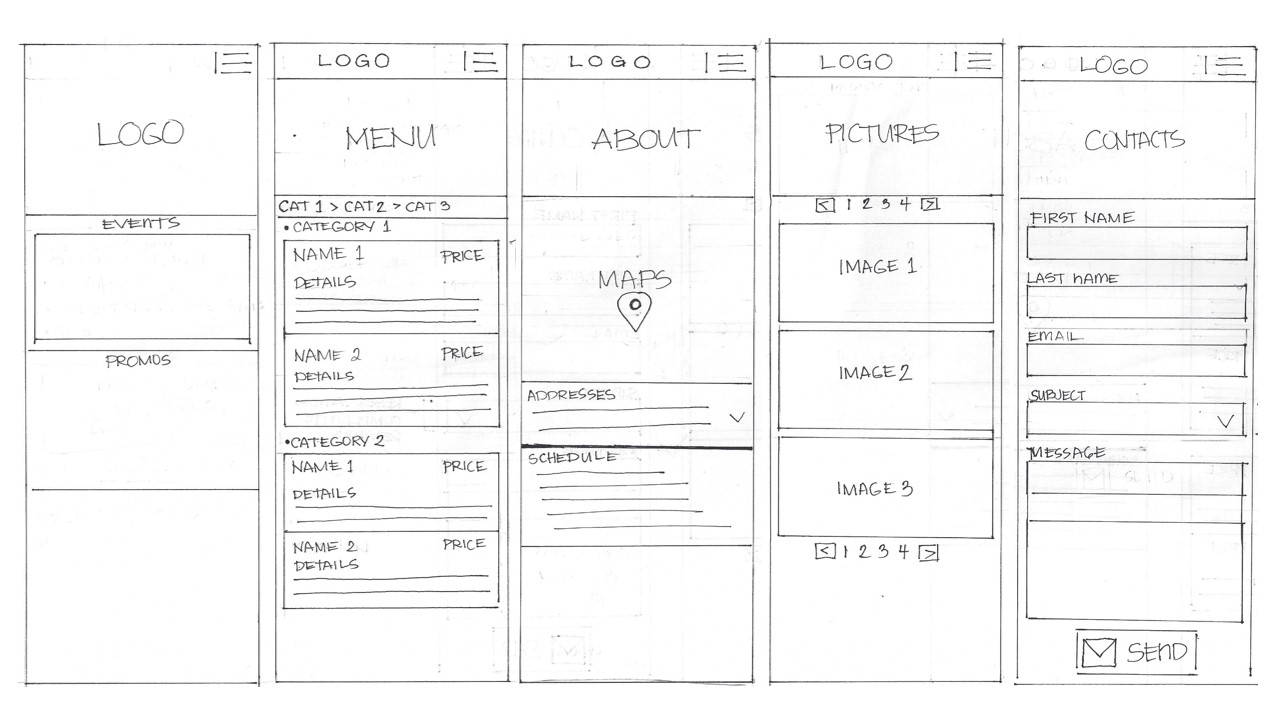 LOGO
EVENTS
PROMOS
LOGO
MENU
CAT 1 > CAT 2 > CAT 3
• CATEGORY 1
NAME 1 PRICE
DETAILS
NAME 2 PRICE
DETAILS
• CATEGORY 2
NAME 1 PRICE
DETAILS
NAME 2 PRICE
DETAILS
LOGO
ABOUT
MAPS
ADDRESSES
SCHEDULE
LOGO
PICTURES
< 1 2 3 4 >
IMAGE 1
IMAGE 2
IMAGE 3
< 1 2 3 4 >
LOGO
CONTACTS
FIRST NAME
LAST NAME
EMAIL
SUBJECT
MESSAGE
SEND